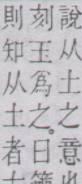 說从土之意
刻王爲之。日
則知从土者